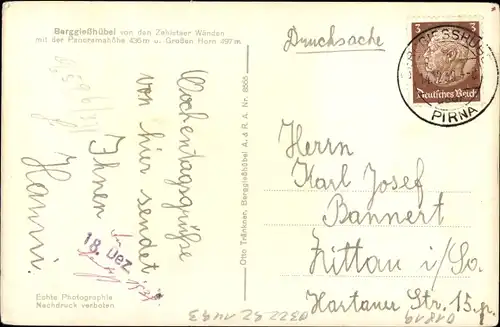 Berggießhübel von den Zehistaer Wänden
mit der Panoramahöhe 436 m u. Großen Horn 497 m
Drucksache
3
Deutsches Reich
PIRNA
Wochentagsgrüße
von hier sendet
Ihnen
Hanni.
18. Dez.
Otto Tränkner, Berggießhübel A. d. R. A. Nr. 8866
Herrn
Karl Josef
Bannert
Zittau i/Sa.
Hartauer Str. 15.
Echte Photographie
Nachdruck verboten